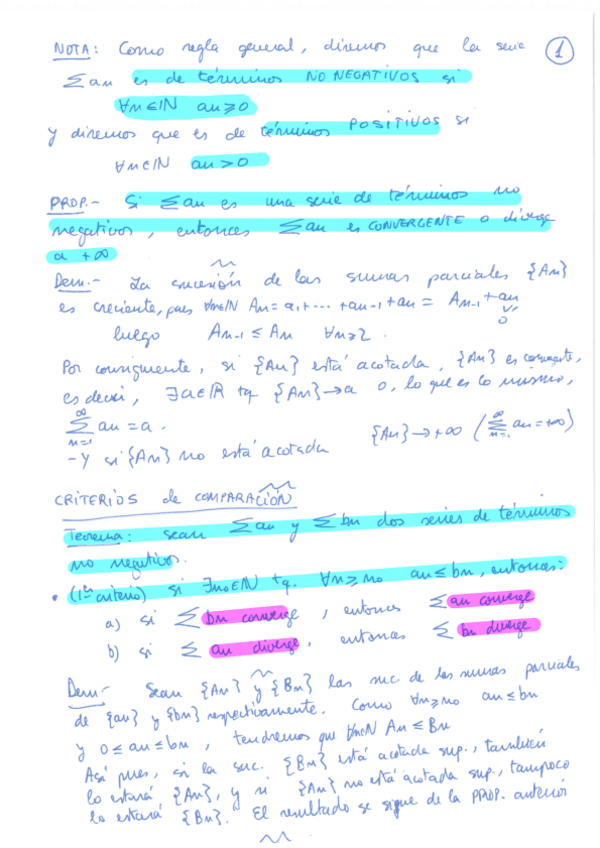 NOTA: Como regla general, diremos que la serie ①
∑an es de términos NO NEGATIVOS si
∀n∈ℕ an⩾0
y diremos que es de términos POSITIVOS si
∀n∈ℕ an>0
PROP.- Si ∑an es una serie de términos no
negativos, entonces ∑an es CONVERGENTE o diverge
a +∞
Dem.- La sucesión de las sumas parciales {An}
es creciente, pues ∀n∈ℕ An=a1+...+an-1+an = An-1+an
∨ı
0
luego An-1 ≤ An ∀n⩾2.
Por consiguiente, si {An} está acotada, {An} es convergente,
es decir, ∃a∈ℝ tq {An}→a o, lo que es lo mismo,
∞
∑ an = a.
n=1
-Y si {An} no está acotada {An}→+∞ (∞∑n=1 an=+∞)
CRITERIOS de COMPARACIÓN
Teorema: Sean ∑an y ∑bn dos series de términos
no negativos.
• (1er criterio) si ∃n0∈ℕ tq. ∀n⩾n0 an≤bn, entonces:
a) si ∑ bn converge, entonces ∑ an converge
b) si ∑ an diverge, entonces ∑ bn diverge
Dem.- Sean {An} y {Bn} las suc. de las sumas parciales
de {an} y {bn} respectivamente. Como ∀n⩾n0 an≤bn
y 0≤an≤bn, tendremos que ∀n∈ℕ An≤Bn
Así pues, si la suc. {Bn} está acotada sup., también
lo estará {An}, y si {An} no está acotada sup., tampoco
lo estará {Bn}. El resultado se sigue de la PROP. anterior